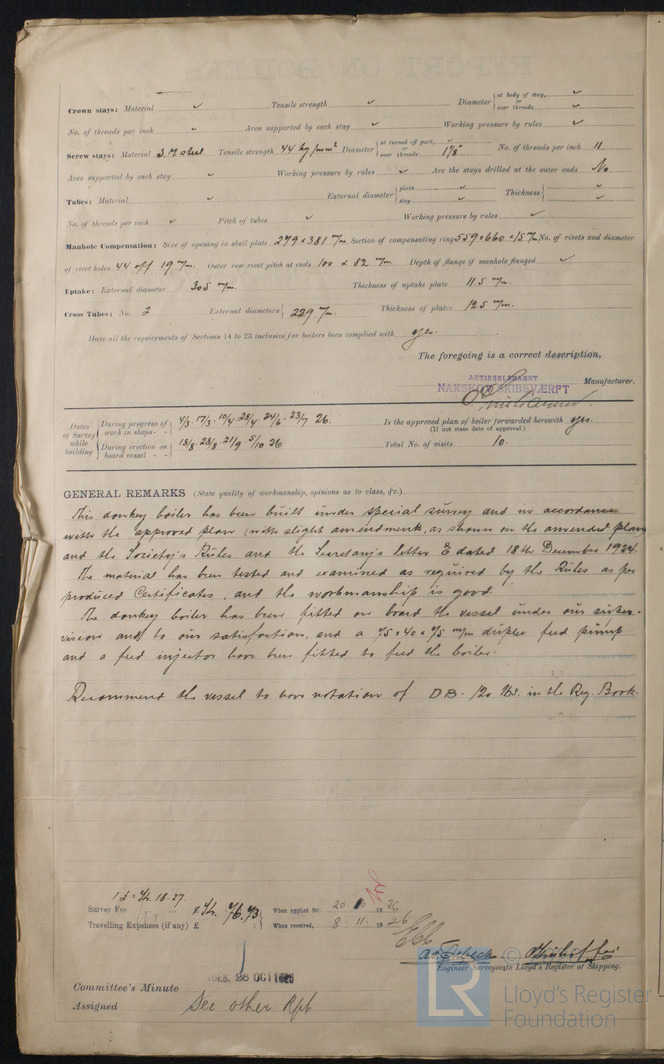 Crown stays: Material ✓ Tensile strength ✓ Diameter { at body of stay, ✓ or over threads ✓
No. of threads per inch ✓ Area supported by each stay ✓ Working pressure by rules ✓
Screw stays: Material S.M steel Tensile strength 44 kg/mm² Diameter { at turned off part, or over threads 1⅛" No. of threads per inch 11.
Area supported by each stay ✓ Working pressure by rules ✓ Are the stays drilled at the outer ends No
Tubes: Material ✓ External diameter { plain ✓ stay ✓ Thickness { ✓ ✓
No. of threads per inch ✓ Pitch of tubes ✓ Working pressure by rules ✓
Manhole Compensation: Size of opening in shell plate 279 x 381 m/m Section of compensating ring 559 x 660 x 15 m/m No. of rivets and diameter
of rivet holes 44 off 19 m/m. Outer row rivet pitch at ends 100 x 82 m/m. Depth of flange if manhole flanged ✓
Uptake: External diameter 305 m/m Thickness of uptake plate 11.5 m/m.
Cross Tubes: No. 2 External diameters } 229 m/m. Thickness of plates 12.5 m/m.
Have all the requirements of Sections 14 to 23 inclusive for boilers been complied with yes.
The foregoing is a correct description,
AKTIESELSKABET
NAKSKOV SKIBSVÆRFT Manufacturer.
Dates of Survey while building { During progress of work in shops - - 4/3. 17/3. 10/4. 28/4. 24/6. 23/7 26. Is the approved plan of boiler forwarded herewith yes.
(If not state date of approval.)
During erection on board vessel - - - 18/8. 28/8. 21/9. 5/10 26 Total No. of visits 10.
GENERAL REMARKS (State quality of workmanship, opinions as to class, &c.)
This donkey boiler has been built under special survey and in accordance
with the approved plan (with slight amendments, as shown on the amended plan
and the Society's Rules and the Secretary's letter E dated 18th December 1924.
The material has been tested and examined as required by the Rules as per
produced Certificates, and the workmanship is good.
The donkey boiler has been fitted on board the vessel under our super-
vision and to our satisfaction, and a 75 x 40 x 75 m/m duplex feed pump
and a feed injector have been fitted to feed the boiler.
Recommend the vessel to have notation of DB. 120 lbs. in the Reg. Book.
Survey Fee ... ... When applied for, 19 26
Travelling Expenses (if any) £ When received, 8. 11. 19 26
Engineer Surveyor to Lloyd's Register of Shipping.
TUES. 26 OCT 1926
Committee's Minute
Assigned See other Rpt
LR
© Lloyd's Register
Foundation